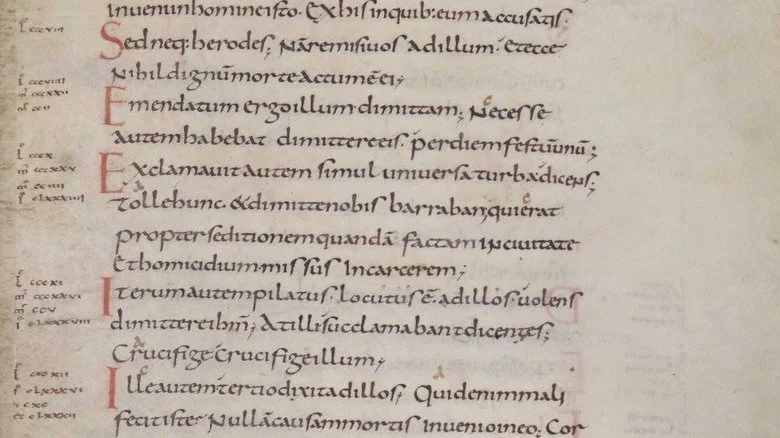 inveni in homine isto. Ex his in quib: eum accusatis.
Sed neq: herodes; Nã remisi vos ad illum. Et ecce
Nihil dignũ morte actum ẽ ei;
Emendatum ergo illum dimittam; Necesse
autem habebat dimittere eis. per diem festũ unũ;
Exclamavit autem simul universa turba dicens;
Tolle hunc. & dimitte nobis barraban; qui erat
propter seditionem quandã factam in civitate
Et homicidium missus In carcerem;
Iterum autem pilatus. locutus ẽ ad illos. volens
dimittere ihm; At illi succlamabant dicentes;
Crucifige Crucifige illum;
Ille autem tertio dixit ad illos; Quid enim mali
fecit iste? Nullã causam mortis invenio in eo; Cor